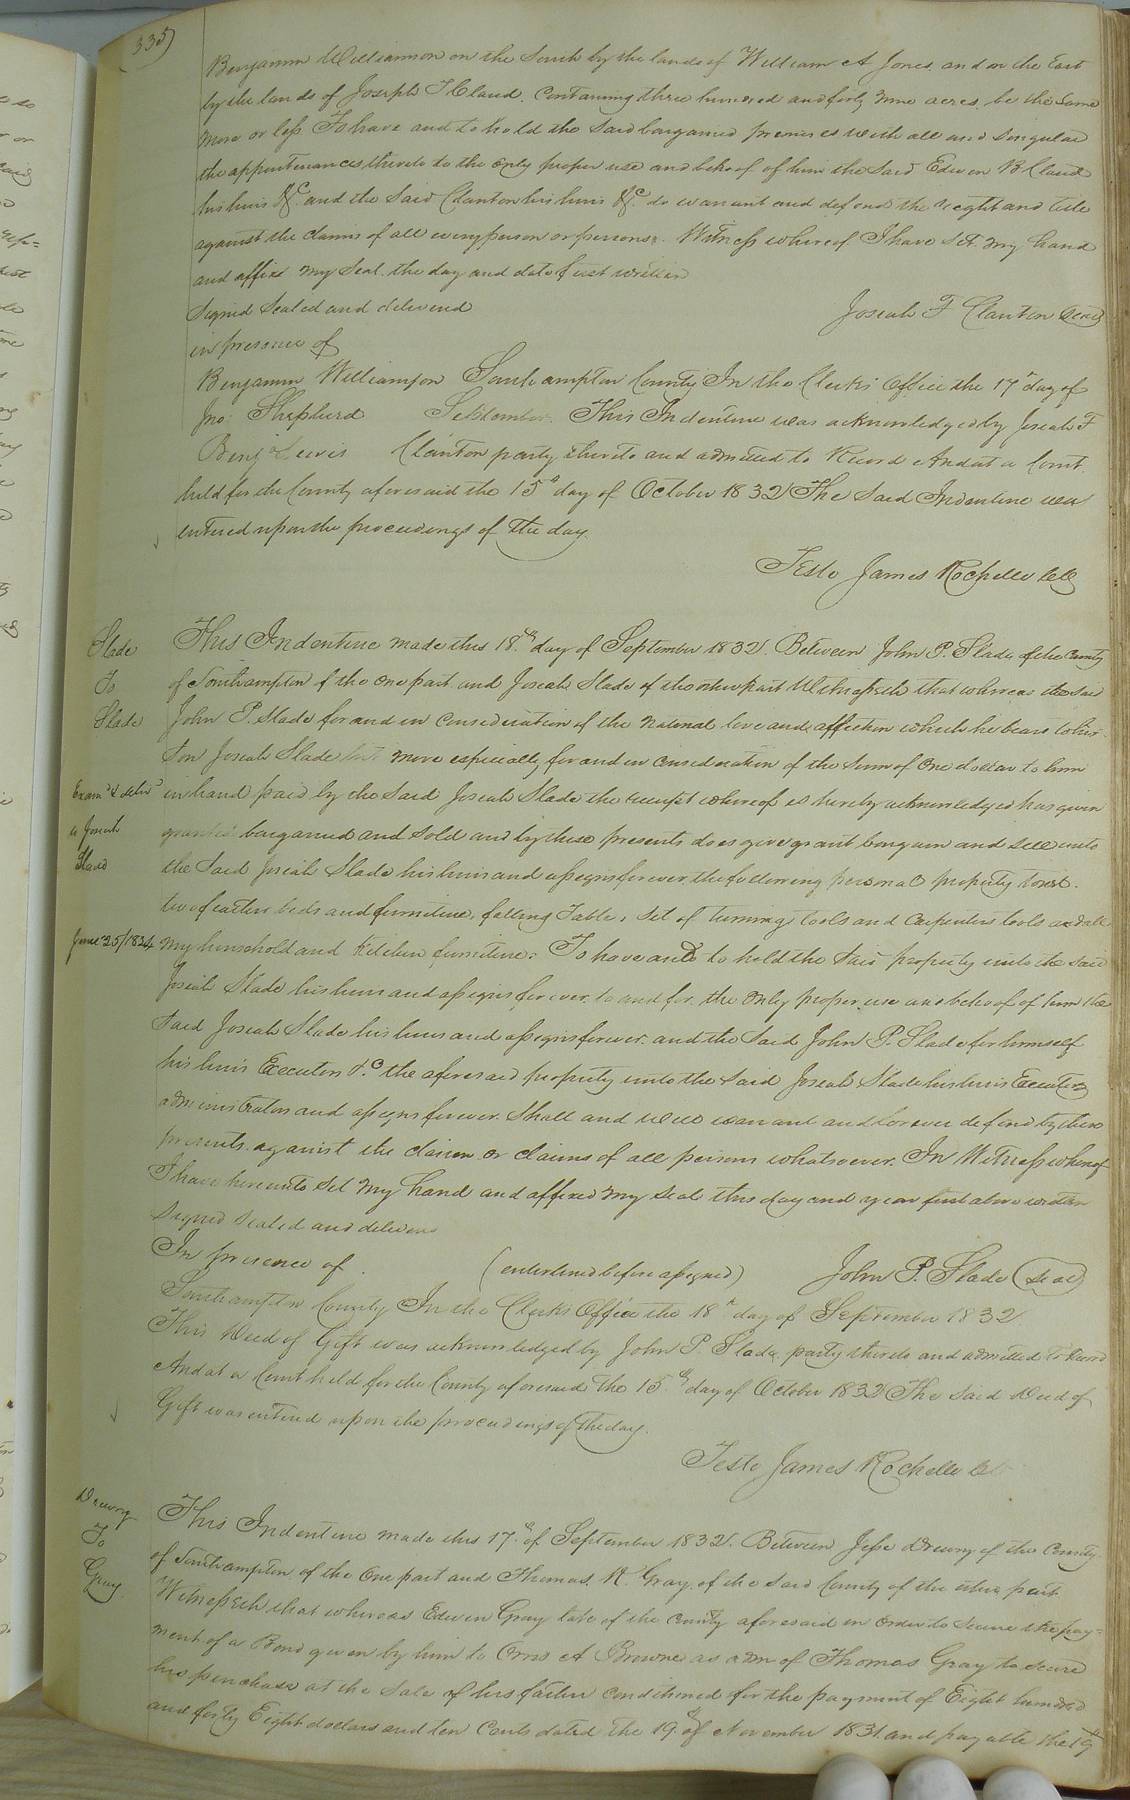 335)
Benjamin Williamson on the South by the lands of William A Jones. and on the East
by the lands of Joseph T Claud. Containing three hundred and forty nine acres, be the same
more or less To have and to hold the said bargained premises with all and singular
the appurtenances thereto to the only proper use and behoof of him the said Edwin B Claud
his heirs &c. and the said Clanton his heirs &c. do warrant and defend the right and title
against the claims of all every person or persons. Witness whereof I have set my hand
and affix my seal. the day and date first written
Signed Sealed and delivered
Josiah F Clanton Seal
in presence of
Benjamin Williamson Southampton County In the Clerks Office the 17th day of
Jno. Shepherd September. This Indenture was acknowledged by Josiah F
Benj Lewis Clanton party thereto and admitted to Record And at a Court
held for the County aforesaid the 15th day of October 1832 The Said Indenture was
entered upon the proceedings of the day.
Teste James Rochelle CC
Slade
To
Slade
Exam'd & deliv'd
to Josiah
Slade
June 25/1834
This Indenture made this 18th day of September 1832. Between John P. Slade of the County
of Southampton of the one part and Josiah Slade of the other part Witnesseth that whereas the said
John P. Slade for and in consideration of the natural love and affection which he bears to his
Son Josiah Slade but more especially for and in consideration of the sum of one dollar to him
in hand paid by the said Josiah Slade the receipt whereof is hereby acknowledged has given
granted bargained and sold and by these presents does give grant bargain and sell unto
the said Josiah Slade his heirs and assigns forever the following personal property towit.
two feather beds and furniture, falling Table, set of turning tools and carpenters tools and all
my household and kitchen furniture: To have and to hold the said property unto the said
Josiah Slade his heirs and assigns forever. to and for the only proper use and behoof of him the
said Josiah Slade his heirs and assigns forever. and the said John P. Slade for himself
his heirs Executors &c the aforesaid property unto the said Josiah Slade his heirs Executors
administrators and assigns forever. Shall and will warrant and forever defend by these
presents. against the claim or claims of all persons whatsoever. In Witness whereof
I have hereunto set my hand and affixed my seal this day and year first above written
Signed sealed and delivered
In presence of (enterlined before assigned) John P. Slade (Seal)
Southampton County In the Clerks Office the 18th day of September 1832
This Deed of Gift was acknowledged by John P. Slade party thereto and admitted to Record
And at a Court held for the County aforesaid the 15th day of October 1832 The said Deed of
Gift was entered upon the proceedings of the day.
Teste James Rochelle CC
Drewry
To
Gray
This Indenture made this 17th of September 1832. Between Jesse Drewry of the County
of Southampton of the One part and Thomas R. Gray of the said County of the other part
Witnesseth that whereas Edwin Gray late of the County aforesaid in order to secure the pay=
ment of a Bond given by him to Orris A Browne as adm of Thomas Gray to secure
his purchase at the sale of his father conditioned for the payment of Eight hundred
and forty Eight dollars and ten Cents dated the 19th of November 1831. and payable the 19